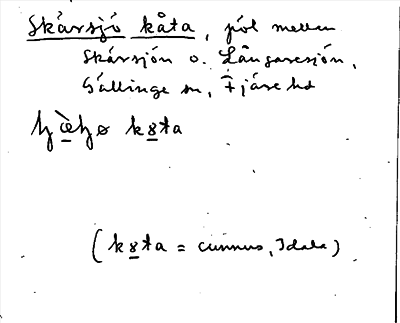 Skärsjö kåta, pöl mellan
Skärsjön o. Långaresjön,
Gällinge sn, Fjäre hd
kȣta
(kȣta = cunnus, Idala)